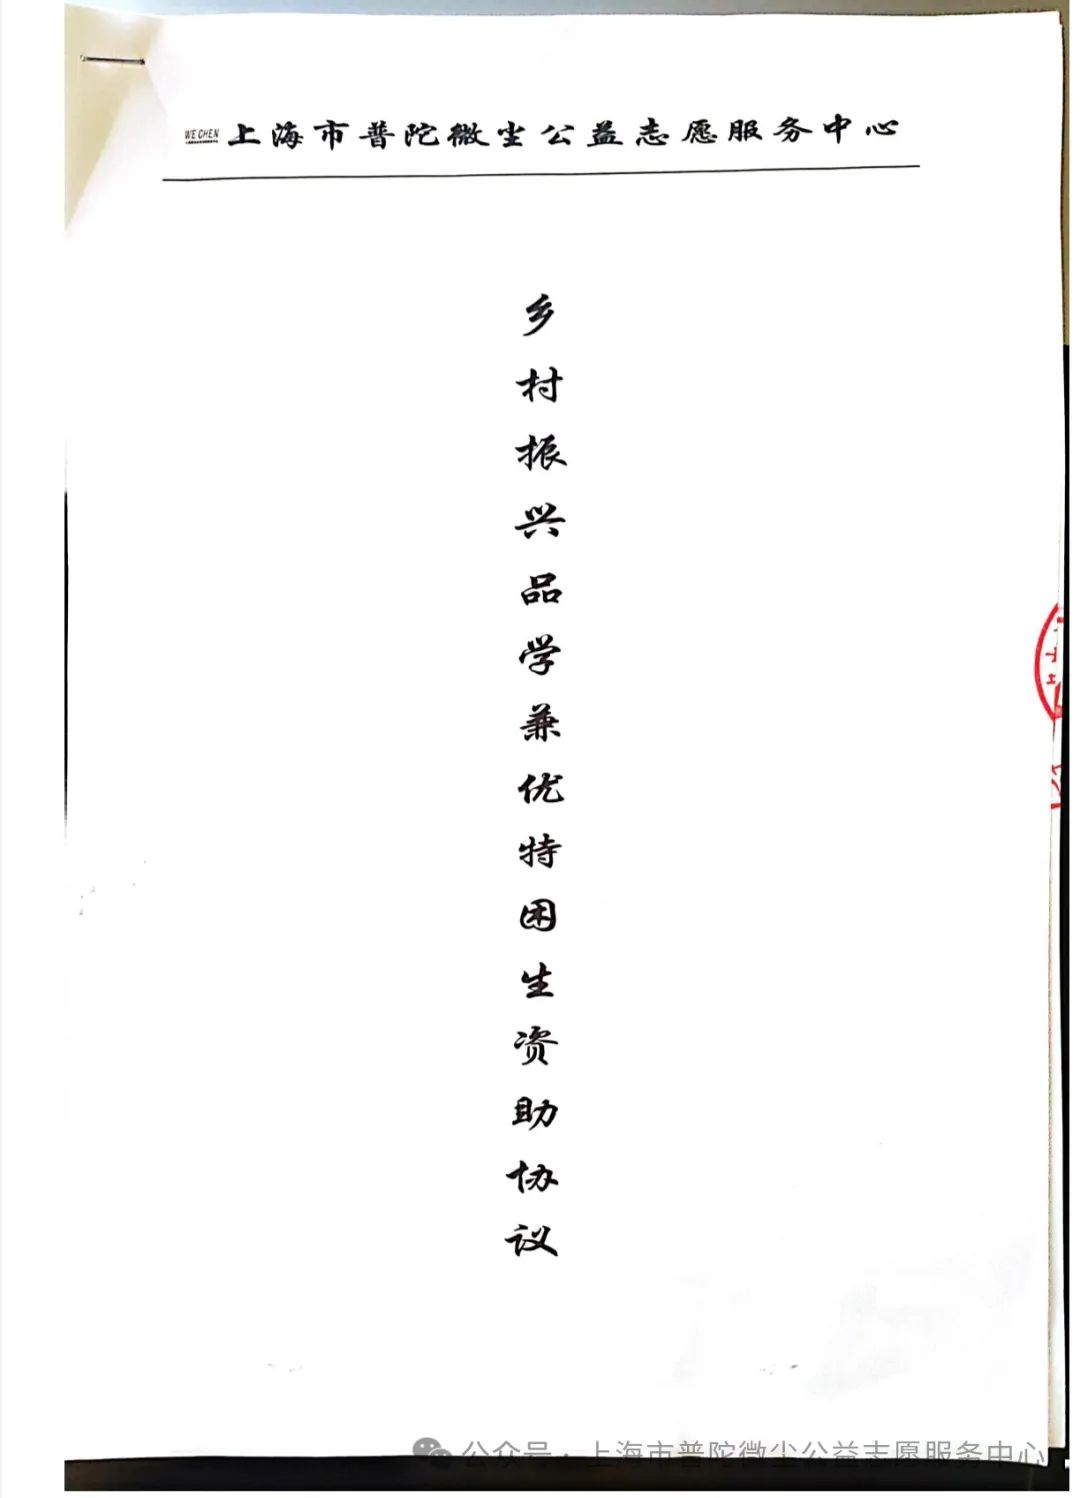 WE CHEN 上海市普陀微尘公益志愿服务中心
乡村振兴品学兼优特困生资助协议
公众号·上海市普陀微尘公益志愿服务中心